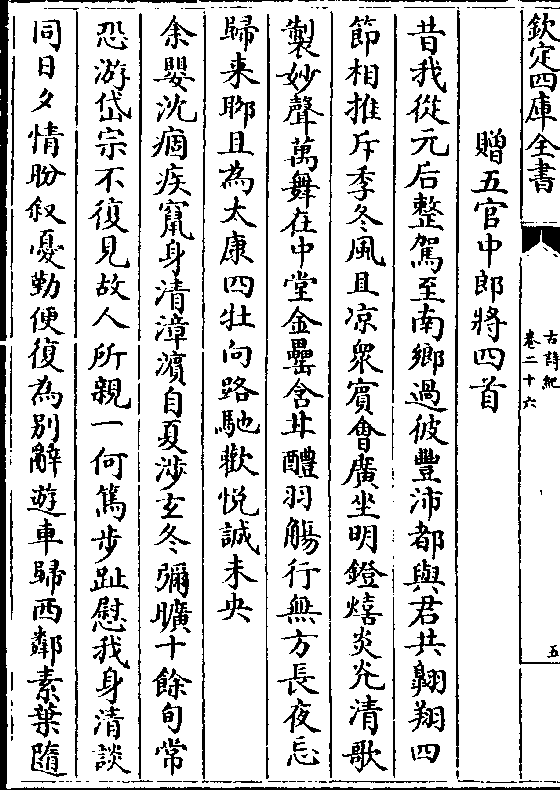 欽定四庫全書
古詩紀
卷二十六
五
贈五官中郎將四首
昔我從元后整駕至南鄉過彼豐沛都與君共翺翔四
節相推斥季冬風且凉衆賓會廣坐明鐙熺炎光清歌
製妙聲萬舞在中堂金罍含甘醴羽觴行無方長夜忘
歸来聊且為太康四牡向路馳歡悦誠未央
余嬰沈痼疾竄身清漳濵自夏涉玄冬彌曠十餘旬常
恐游岱宗不復見故人所親一何篤步趾慰我身清談
同日夕情盼叙憂勤便復為别辭遊車歸西鄰素葉隨